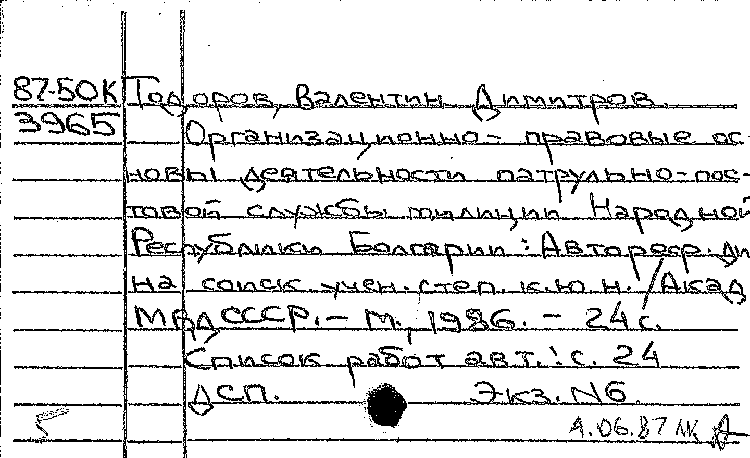 87-50К Тодоров, Валентин Димитров.
3965 Организационно-правовые ос-
новы деятельности патрульно-пос-
товой службы милиции Народной
Республики Болгарии: Автореф. ди
на соиск. учен. степ. к.ю.н. / Акад
МВД СССР. - М., 1986. - 24 с.
Список работ авт.: с. 24
ДСП. Экз. N6.
4.06.87